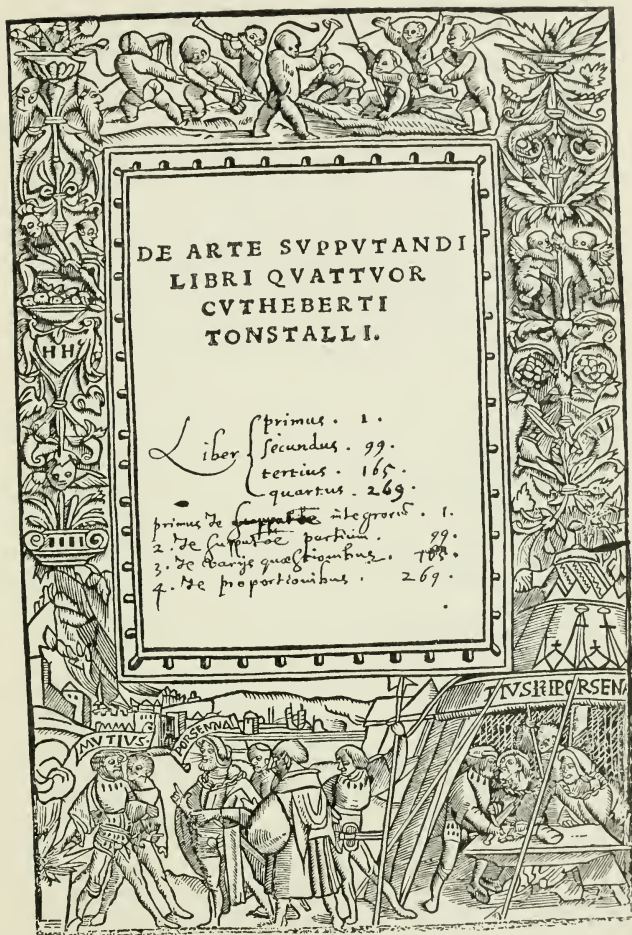 DE ARTE SVPPVTANDI
LIBRI QVATTVOR
CVTHEBERTI
TONSTALLI.
Liber
primus . 1 .
secundus . 99 .
tertius . 165 .
quartus . 269 .
primus de integrorū . 1 .
2. de partium . 99 .
3. de varijs quæstionibus . 165 .
4. de proportionibus . 269 .
HH
MVTIVS
PORSENNA
TIVS PORSEN